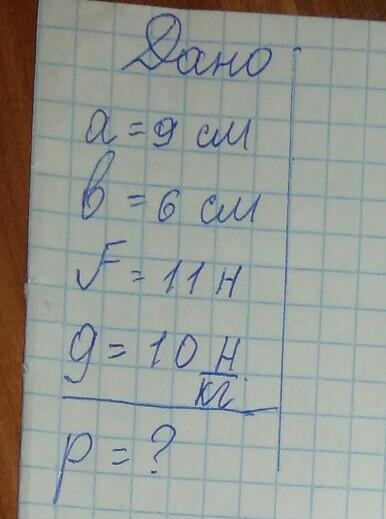 Дано
a = 9 см
в = 6 см
F = 11 н
g = 10 н/кг
p = ?